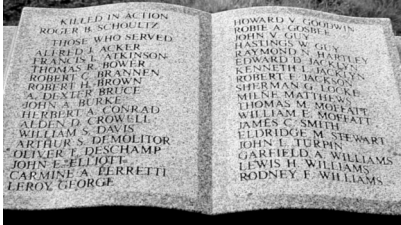 KILLED IN ACTION
ROGER B. SCHOULTZ
THOSE WHO SERVED
ALFRED J. ACKER
FRANCIS L. ATKINSON
THOMAS R. BOWER
ROBERT C. BRANNEN
ROBERT H. BROWN
A. DEXTER BRUCE
JOHN A. BURKE
HERBERT A. CONRAD
ALDEN D. CROWELL
WILLIAM S. DAVIS
ARTHUR S. DEMOLITOR
OLIVER T. DESCHAMP
JOHN E. ELLIOTT
CARMINE A. FERRETTI
LEROY GEORGE
HOWARD V. GOODWIN
ROBIE A. GOSBEE
JOHN V. GUY
HASTINGS W. GUY
RAYMOND N. HARTLEY
EDWARD D. JACKLYN
KENNETH L. JACKLYN
ROBERT F. JACKSON
SHERMAN G. LOCKE
MILNE MATTHEWS
THOMAS M. MOFFATT
WILLIAM E. MOFFATT
JAMES C. SMITH
ELDRIDGE M. STEWART
JOHN L. TURPIN
GARFIELD A. WILLIAMS
LEWIS H. WILLIAMS
RODNEY F. WILLIAMS